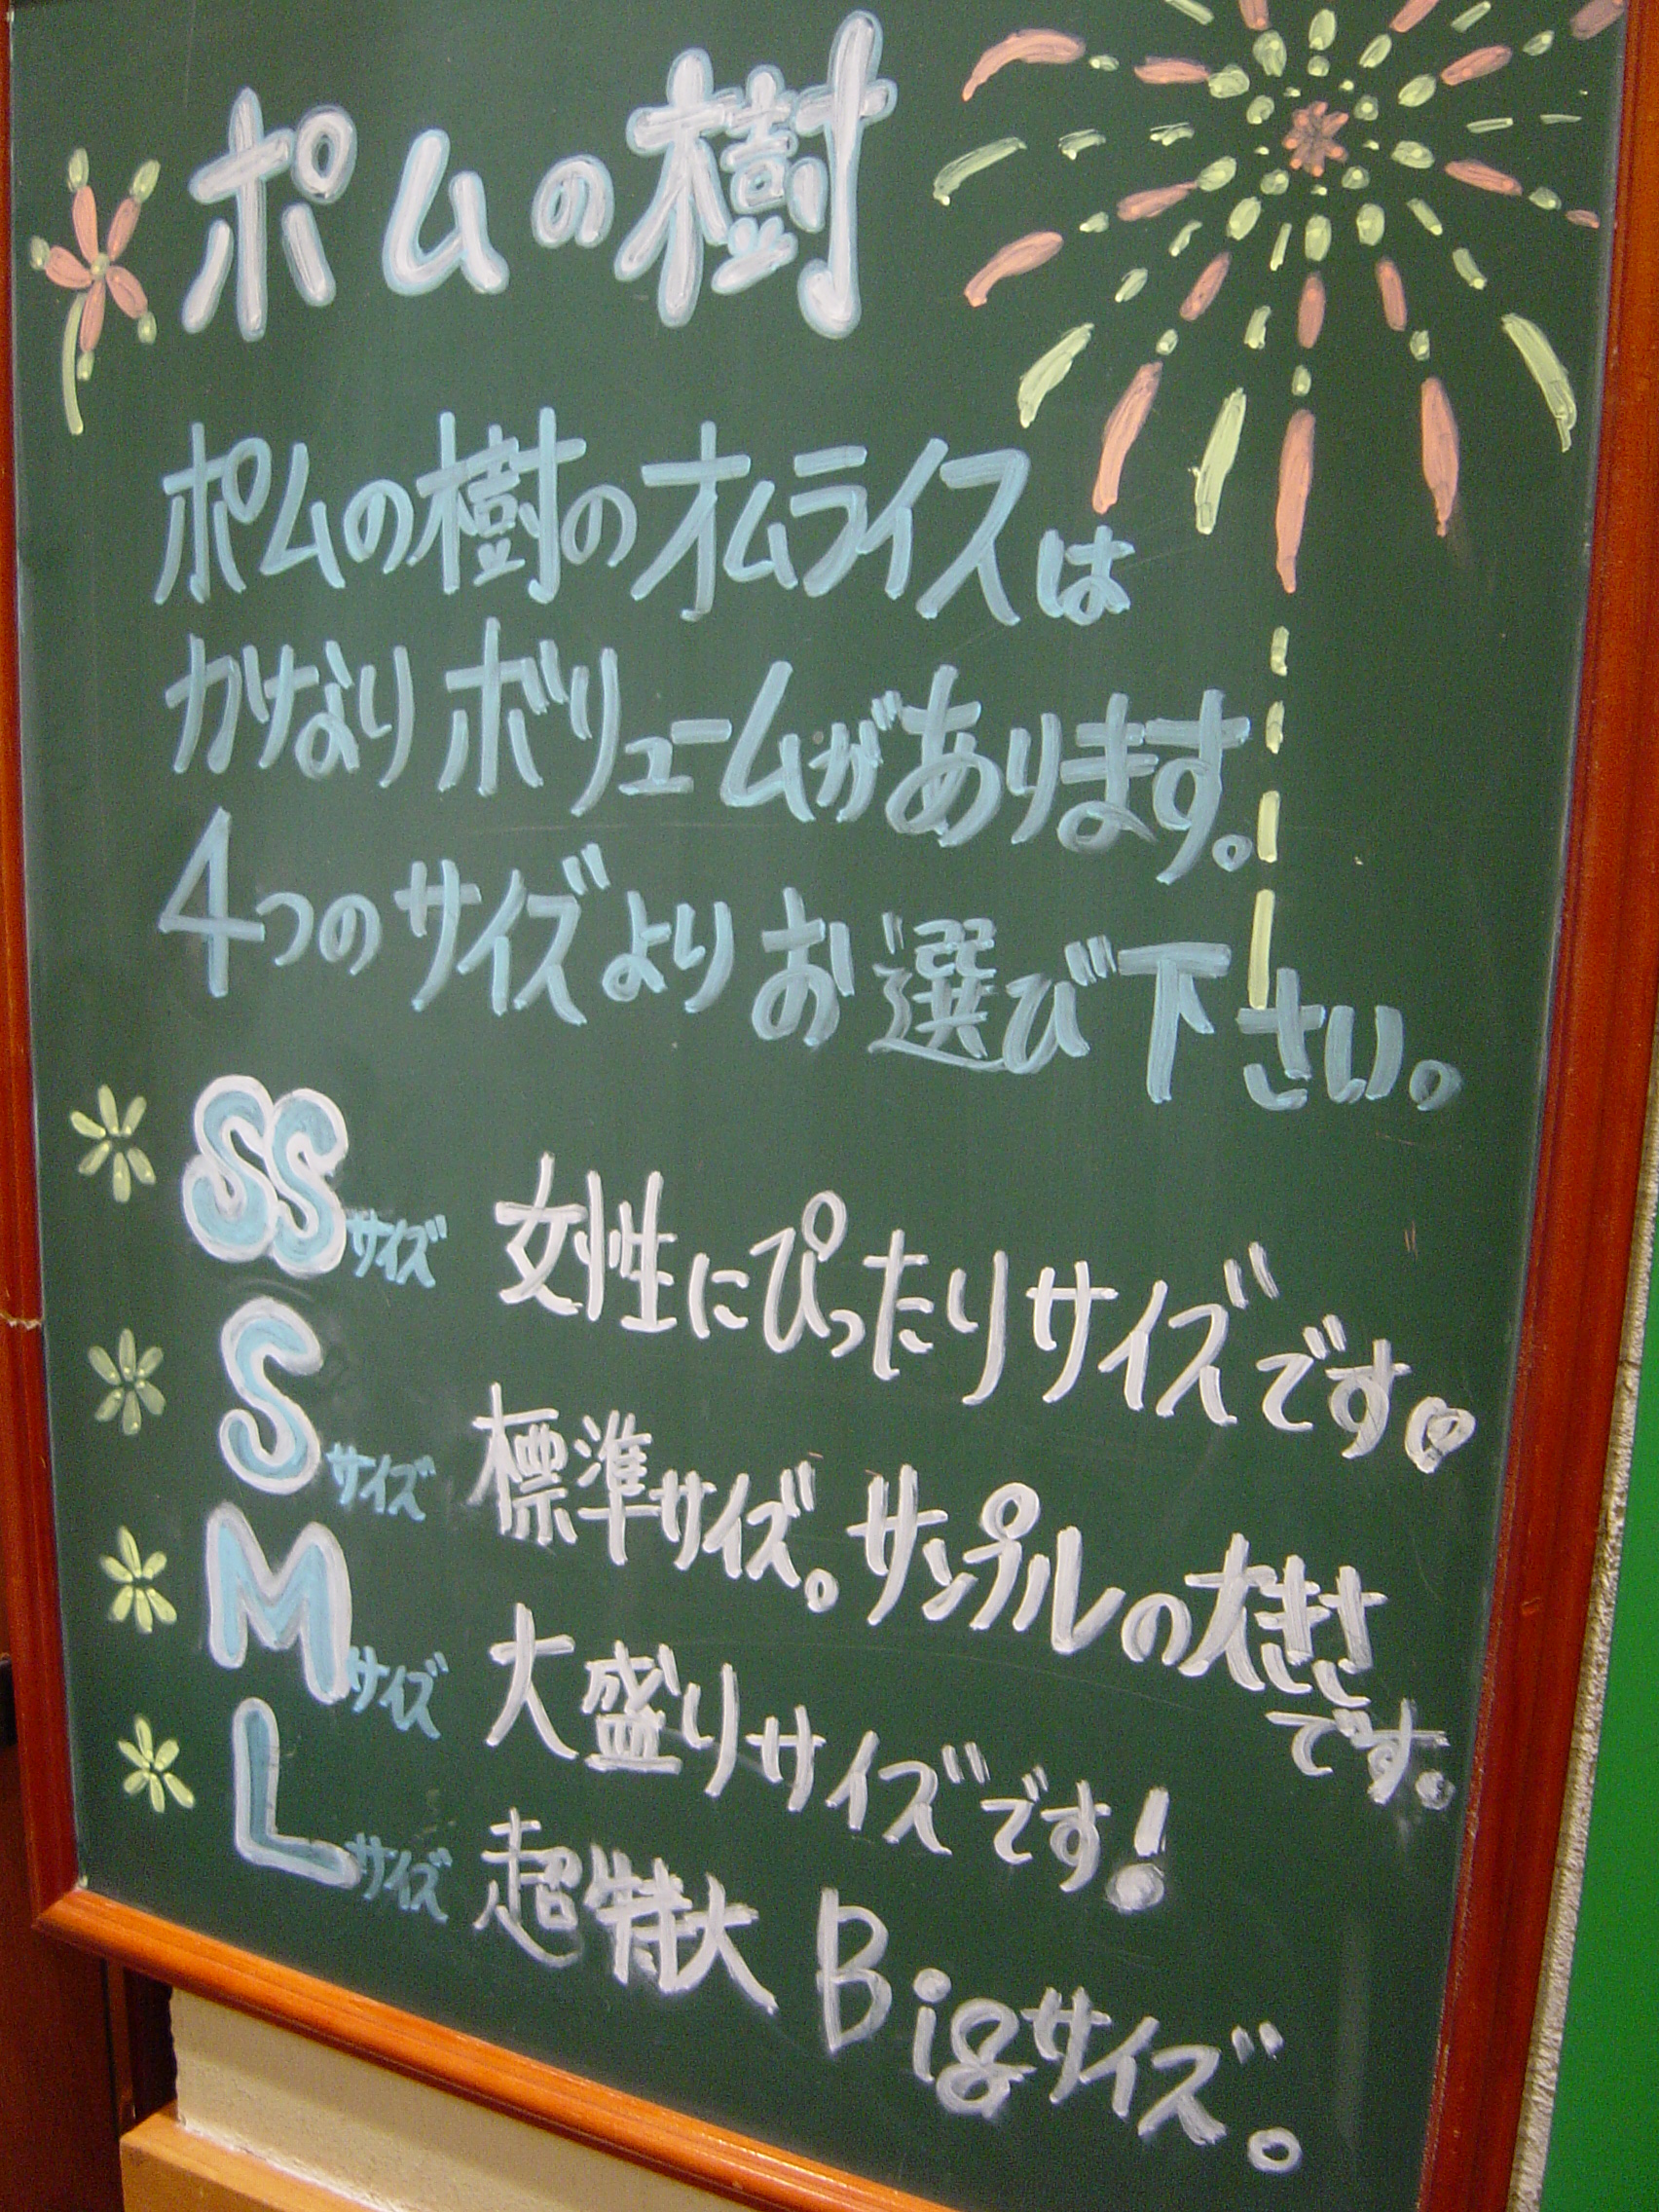 ポムの樹
ポムの樹のオムライスは
かなりボリュームがあります。
4つのサイズよりお選び下さい。
SSサイズ 女性にぴったりサイズです
Sサイズ 標準サイズ。サンプルの大きさ
です。
Mサイズ 大盛りサイズです!
Lサイズ 超特大Bigサイズ。